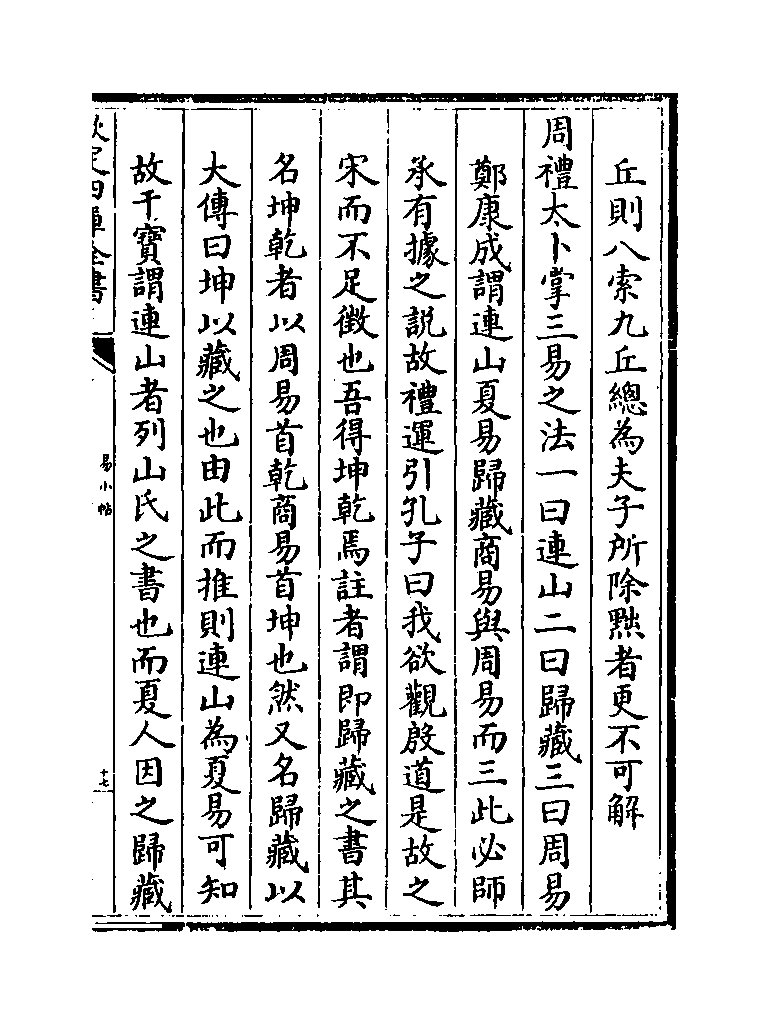 丘則八索九丘總為夫子所除黜者更不可解
周禮太卜掌三易之法一曰連山二曰歸藏三曰周易
鄭康成謂連山夏易歸藏商易與周易而三此必師
承有據之説故禮運引孔子曰我欲觀殷道是故之
宋而不足徴也吾得坤乾焉註者謂即歸藏之書其
名坤乾者以周易首乾商易首坤也然又名歸藏以
大傳曰坤以藏之也由此而推則連山為夏易可知
故干寶謂連山者列山氏之書也而夏人因之歸藏
欽定四庫全書
易小帖
十七